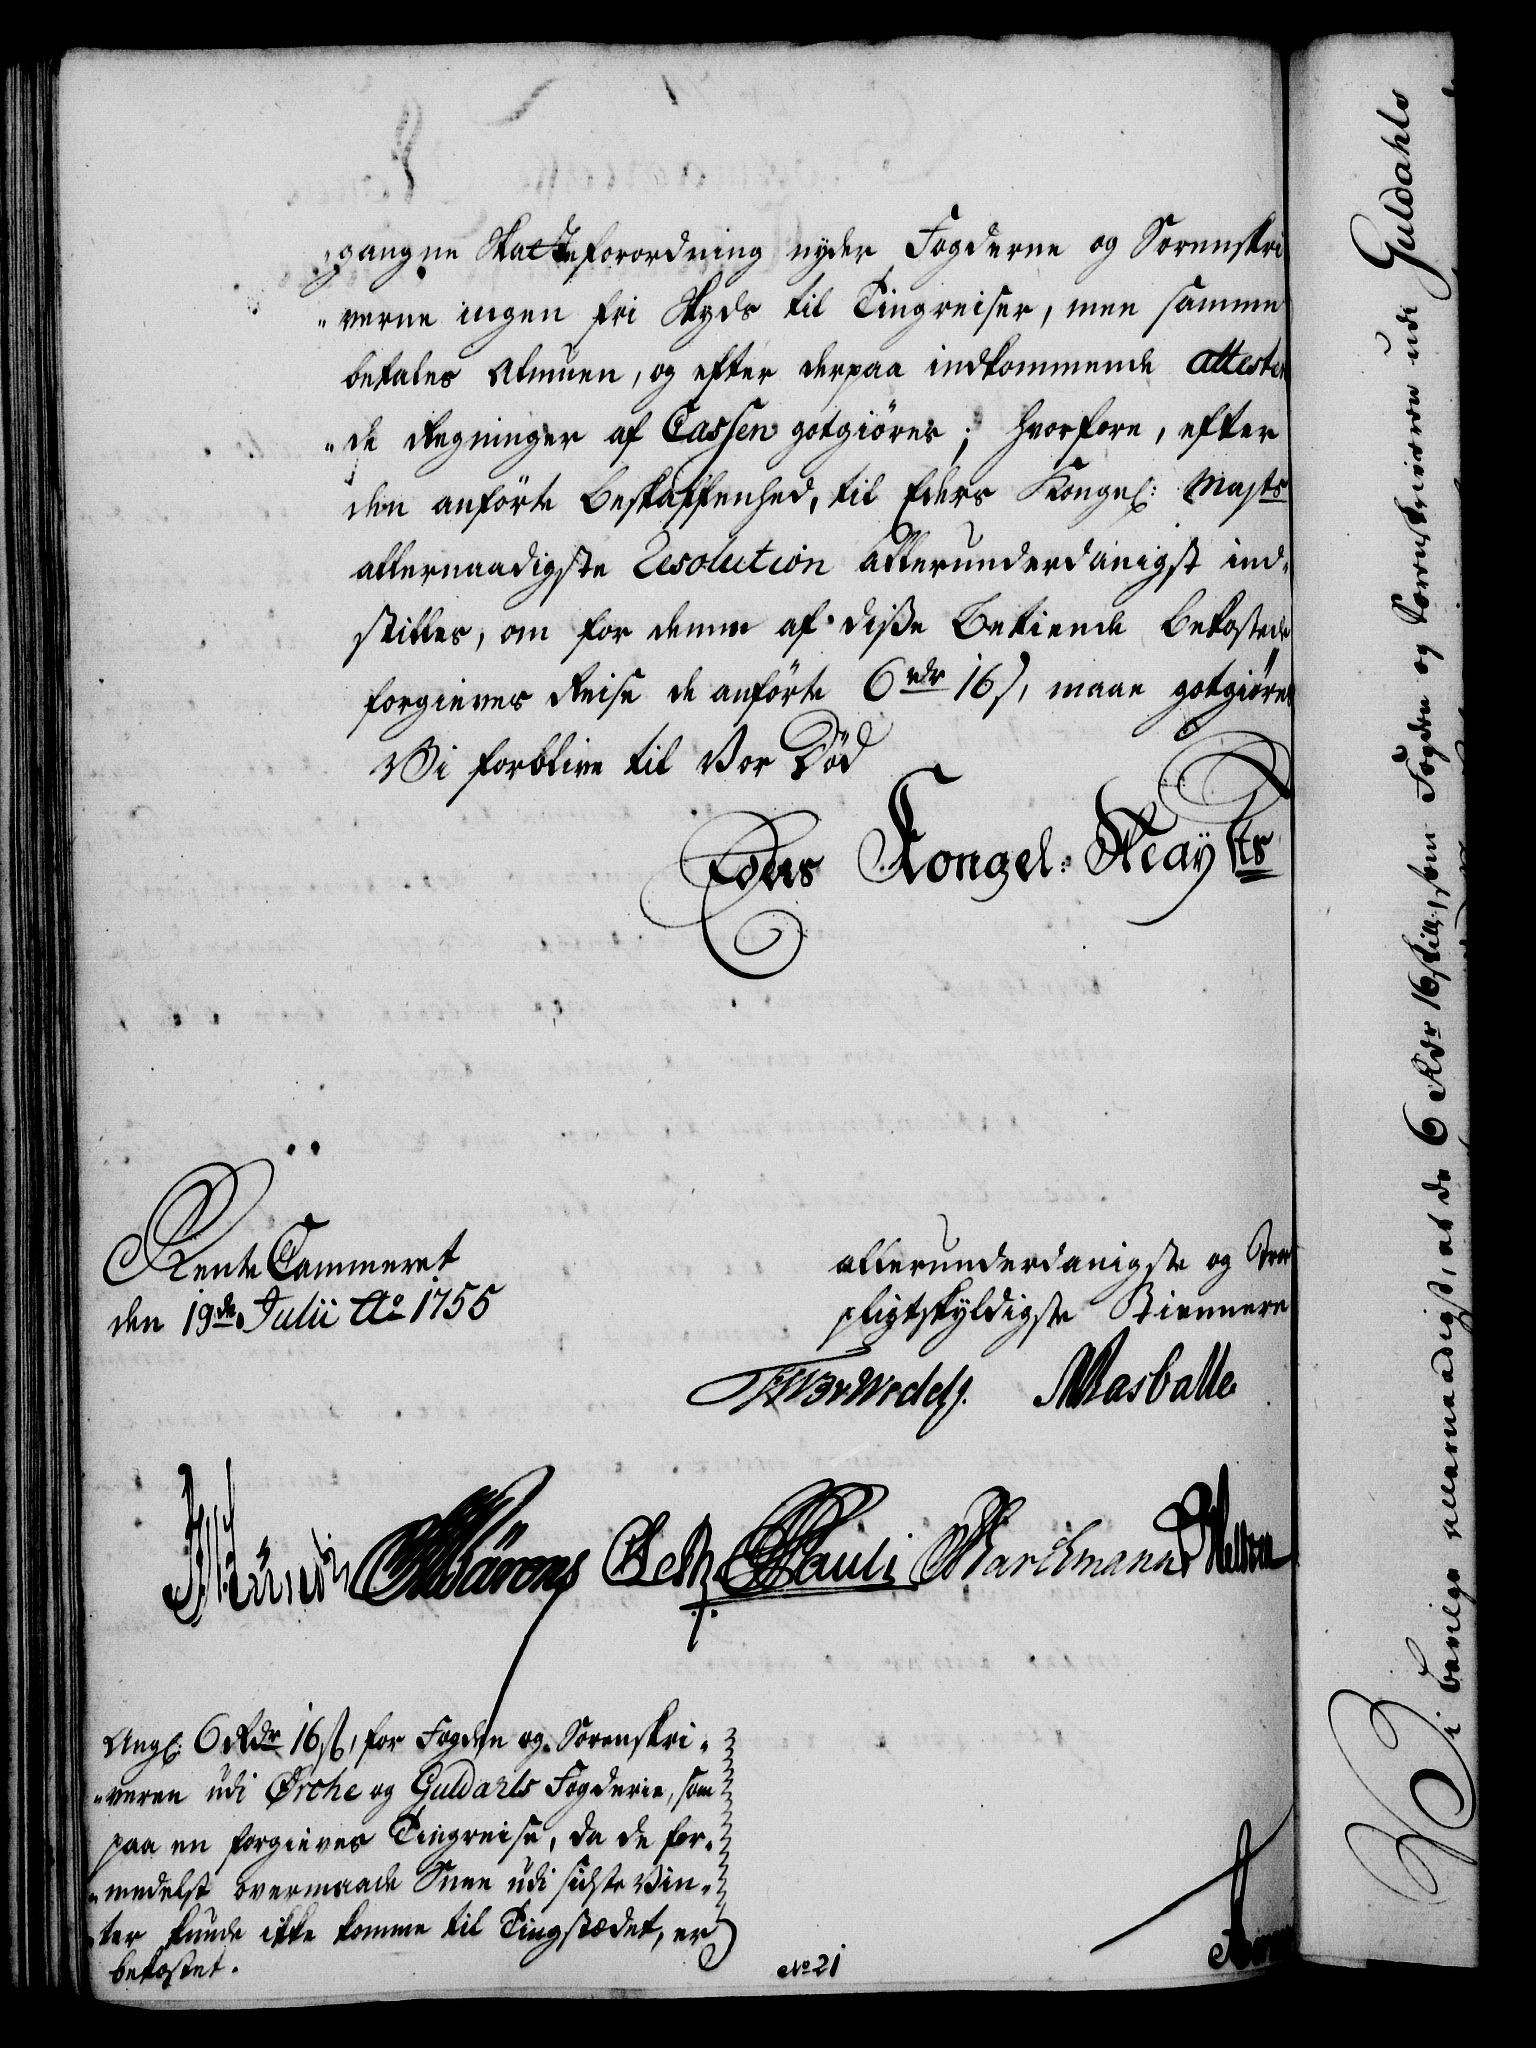 gangne Skatteforordning nyder Fogderne og Sorenskri
„verne ingen fri Skyds til Tingreiser, men samme
betales Almuen, og efter derpaa indkommende attester
„de Regninger af Cassen godtgiöres; hvorfore, efter
den anförte Beskaffenhed, til Eders Kongel: Majts
allernaadigste Resolution allerunderdanigst ind„
stilles, om for denne af diße Betiente bekostede
forgieves Reise de anförte 6 rdr 16 s, maae godtgiöres
Vi forblive til Vor Död
Eders Kongel: Mayts
Rente Cammeret
den 19de Julii Ao 1755
allerunderdanigste og Troe
pligtskyldigste Tiennere
Masballe
Pauli Barchmann
Angl: 6 Rdr 16 s, for Fogden og Sorenskri„
„veren udi Orche og Guldahls Fogderie, som
paa en forgieves Tingreise, da de for„
„medelst overmaade Snee udi sidste Vin„
ter kunde ikke komme til Tingstædet, er
bekostet.
No 21
Vi bevilge allernaadigst, at de 6 Rdr 16 skill, som Fogden og Sorenskriveren udi Guldahls